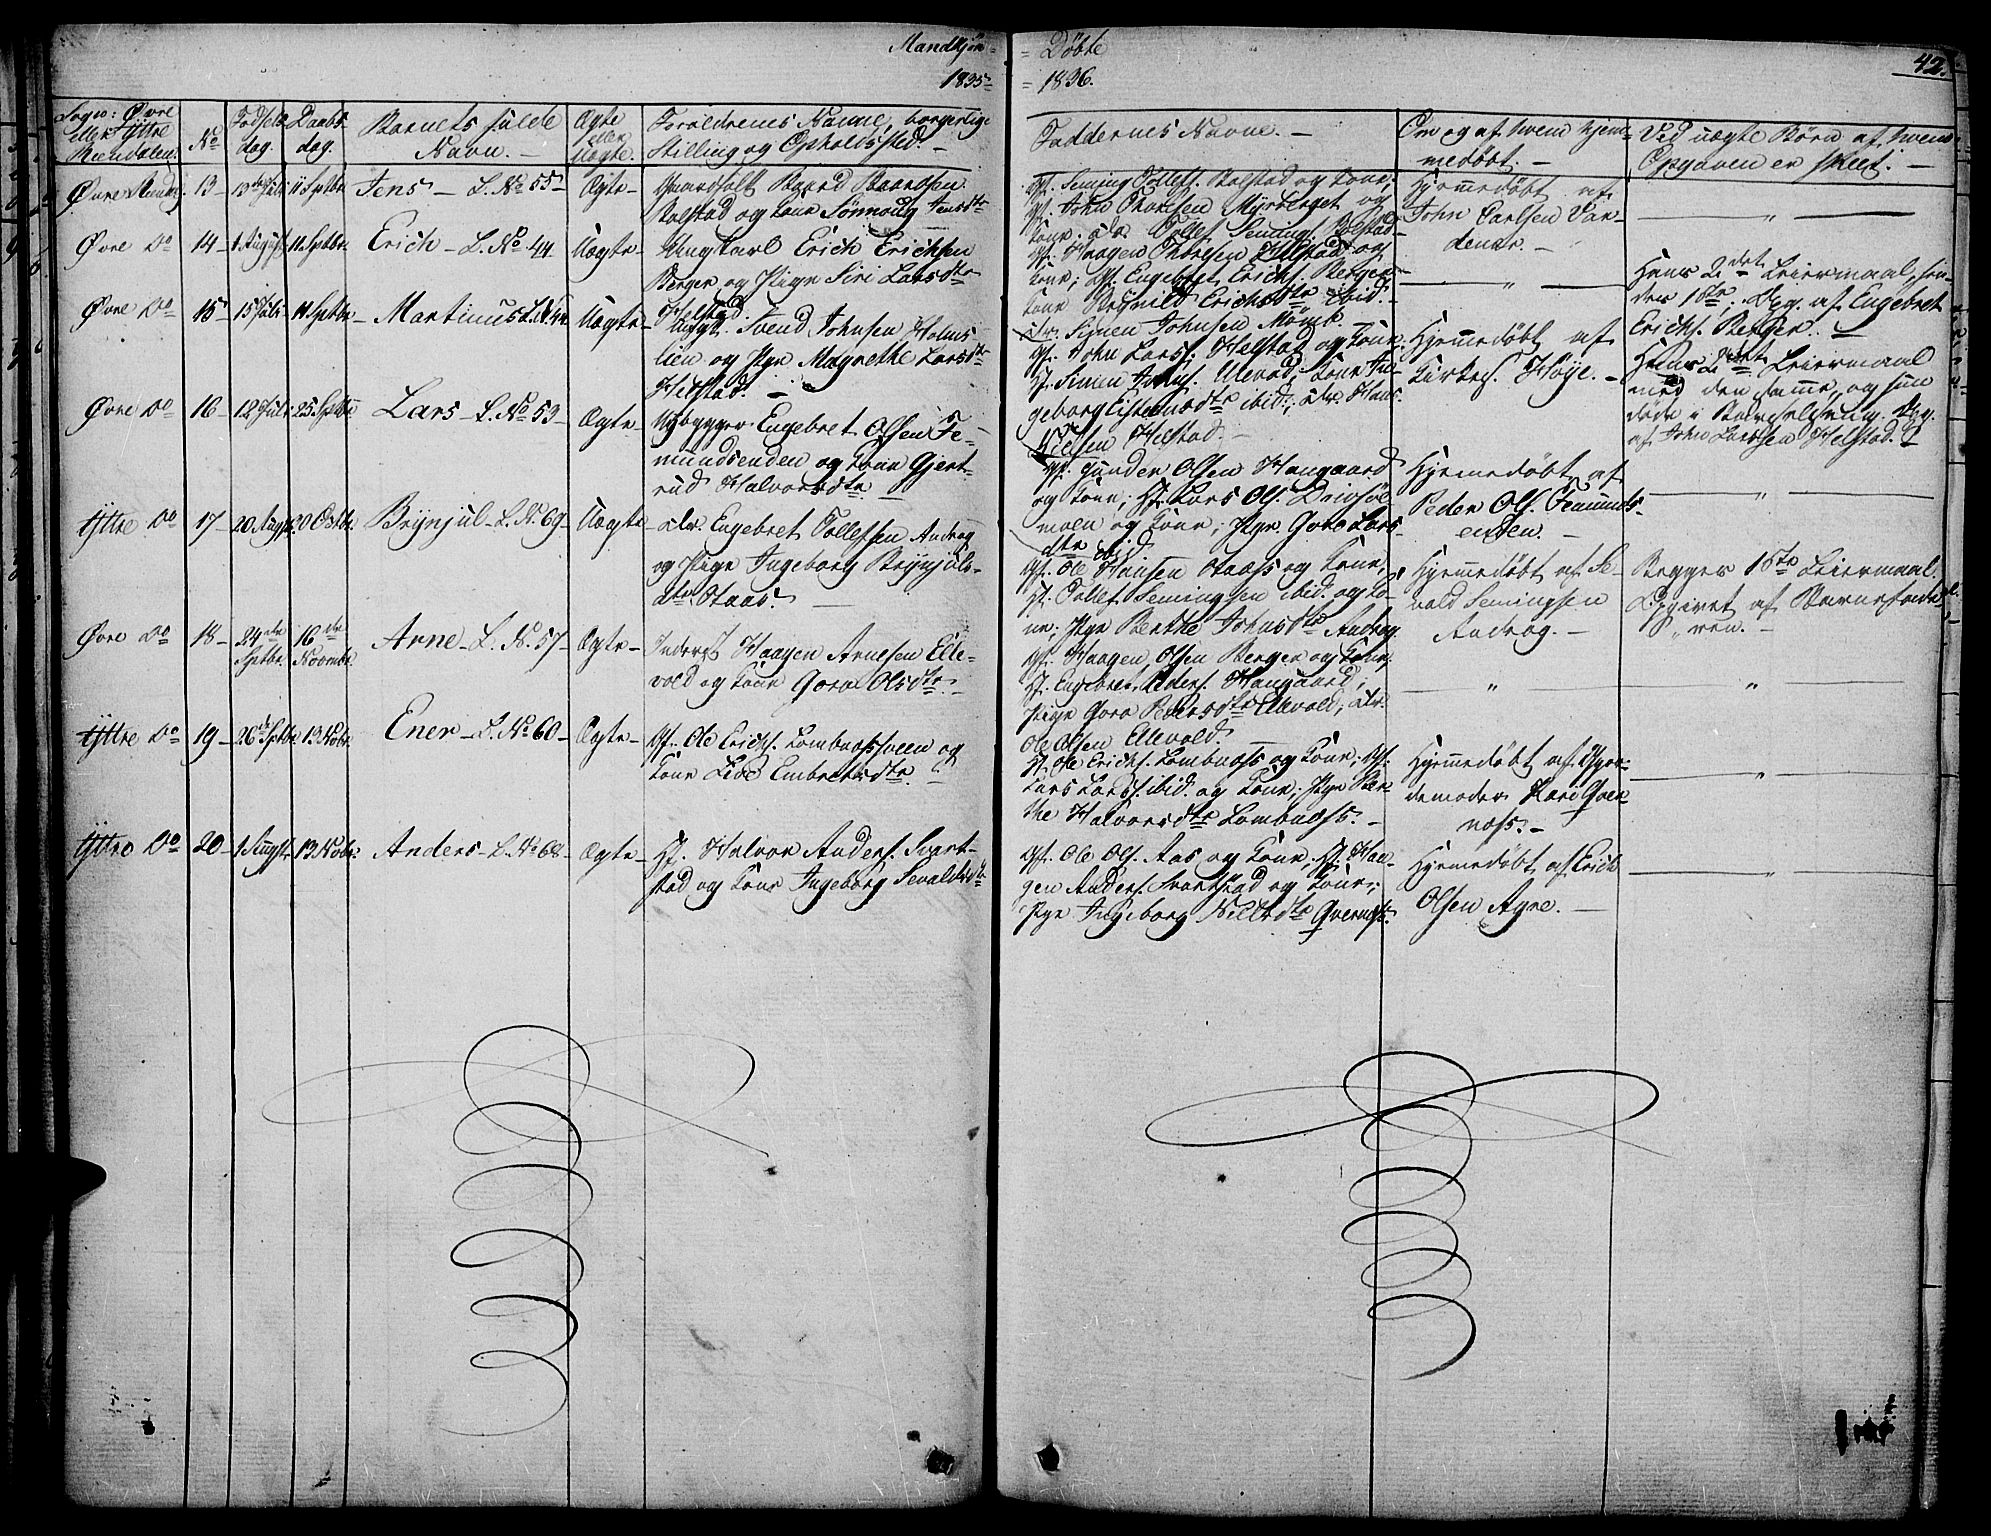 Mandkjön = = Döbte
1835 = = 1836.
42.
Sogn: Øvre eller Yttre Rendalen.
No
Fødsels dag.
Daabs dag.
Barnets fulde Navn. —
Ægte eller Uægte.
Forældrenes Navne, borgerlige Stilling og Opholdssted. —
Faddernes Navne. —
Om og af hvem hjemmedøbt. —
Ved uægte Børn af hvem Opgaven er skeet. —
Øvre Rendal. 13 — 13de Juli 11 Septbr. Jens — L. No 55 — Ægte —
Gaardfolk Baard Baardsen
Bolstad og Kone Sönnoug Jensdtr
Gf. Seming Tollefs. Bolstad og Kone;
Gf. John Thoresen Myrberget og
Kone;
Hjemmedöbt af
John Carlsen Vardenær. —
Øvre Do 14 — 1 August 11 Septbr. Erich — L. No 44 Uægte —
Ungkarl Erich Erichsen
Berger og Pige Siri Larsdtr
Helstad.
Gf. Haagen Thoresen Helstad og
Kone; Gf. Engebret Erichs. Berger
Kone Regnild Erichsdtr ibid.
Hans 2det Leiermaal, hendes 1ste. Opg. af Engebret
Erichs. Berger. —
Øvre Do 15 — 15 Juli 11 Septbr — Martinus L. No 44 Uægte —
Ungk. Svend Johnsen Holmslien og Pige Magrethe Larsdtr
Helstad. —
Simen Johnsen Mömb.
Gf. John Larss. Helstad og Kone;
Hf. Simen Johns. Ulevold, Kone Ingeborg Eistensdtr ibid.; Hans
Nielsen Helstad. —
Hjemmedöbt af
Kirkes. Höye. —
Hendes 2det Leiermaal
med den samme, og hun
döde i Barselseng. Opg.
af John Larssen Helstad.
Øvre Do 16 — 12 Juli 25 Septbr Lars — L. No 53 — Ægte —
Nybygger Engebret Olsen Femundsenden og Kone Gjertrud Halvorsdtr
Gf. Gunder Olsen Haugaard
og Kone; Hf. Lars Ols. Drivsölmoen og Kone; Pige Goro Larsdtr ibid.
Hjemmedöbt af
Peder Ols. Femundsenden. —
Yttre Do 17 — 20 Augst 20 Octbr Brynjul — L. No 69 — Uægte —
Engebret Tollefsen Androg
og Pige Ingeborg Brynjulsdtr Staas.
Gf. Ole Hansen Staas og Kone;
Hf. Tollef Semingsen ibid. og Kone; Pige Berthe Johnsdtr Androg
Hjemmedöbt af Sevald Semingsen
Androg. —
Begges 1ste Leiermaal.
Opgivet af Barnefaderen. —
Øvre Do 18 — 24de Septbr 16de Novembr. Arne — L. No. 57 — Ægte —
Inderst Haagen Arnesen Ellevold og Kone Goro Olsdtr. —
Gf. Haagen Olsen Berger og Kone;
Hf. Engebret Peders. Haugaard;
Pige Goro Pedersdtr Ellevold;
Ole Olsen Ellevold.
Yttre Do 19 — 26de Septbr. 13 Nobr. Ener — L. No 60 — Ægte —
Gf. Ole Erichs. Lombnæssveen og
Kone Lise Embretsdtr.
Hf. Ole Erichs. Lombnæss og Kone; Gf.
Lars Larss. ibid. og Kone; Pige Berthe Halvorsdtr Lombnæss. —
Hjemmedöbt af Gjordemoder Kari Quernæss. —
Yttre Do 20 — 1 Augst 13 Nobr. Anders — L. No 68 — Ægte —
Hf. Halvor Anders. Svartstad og Kone Ingeborg Sevaldsdtr
Gf. Ole Ols. Aas og Kone; Hf. Haagen Anders. Svartstad og Kone;
Pige Ingeborg Nilsdtr Quernæs.
Hjemmedöbt af Erich
Olsen Agre. —